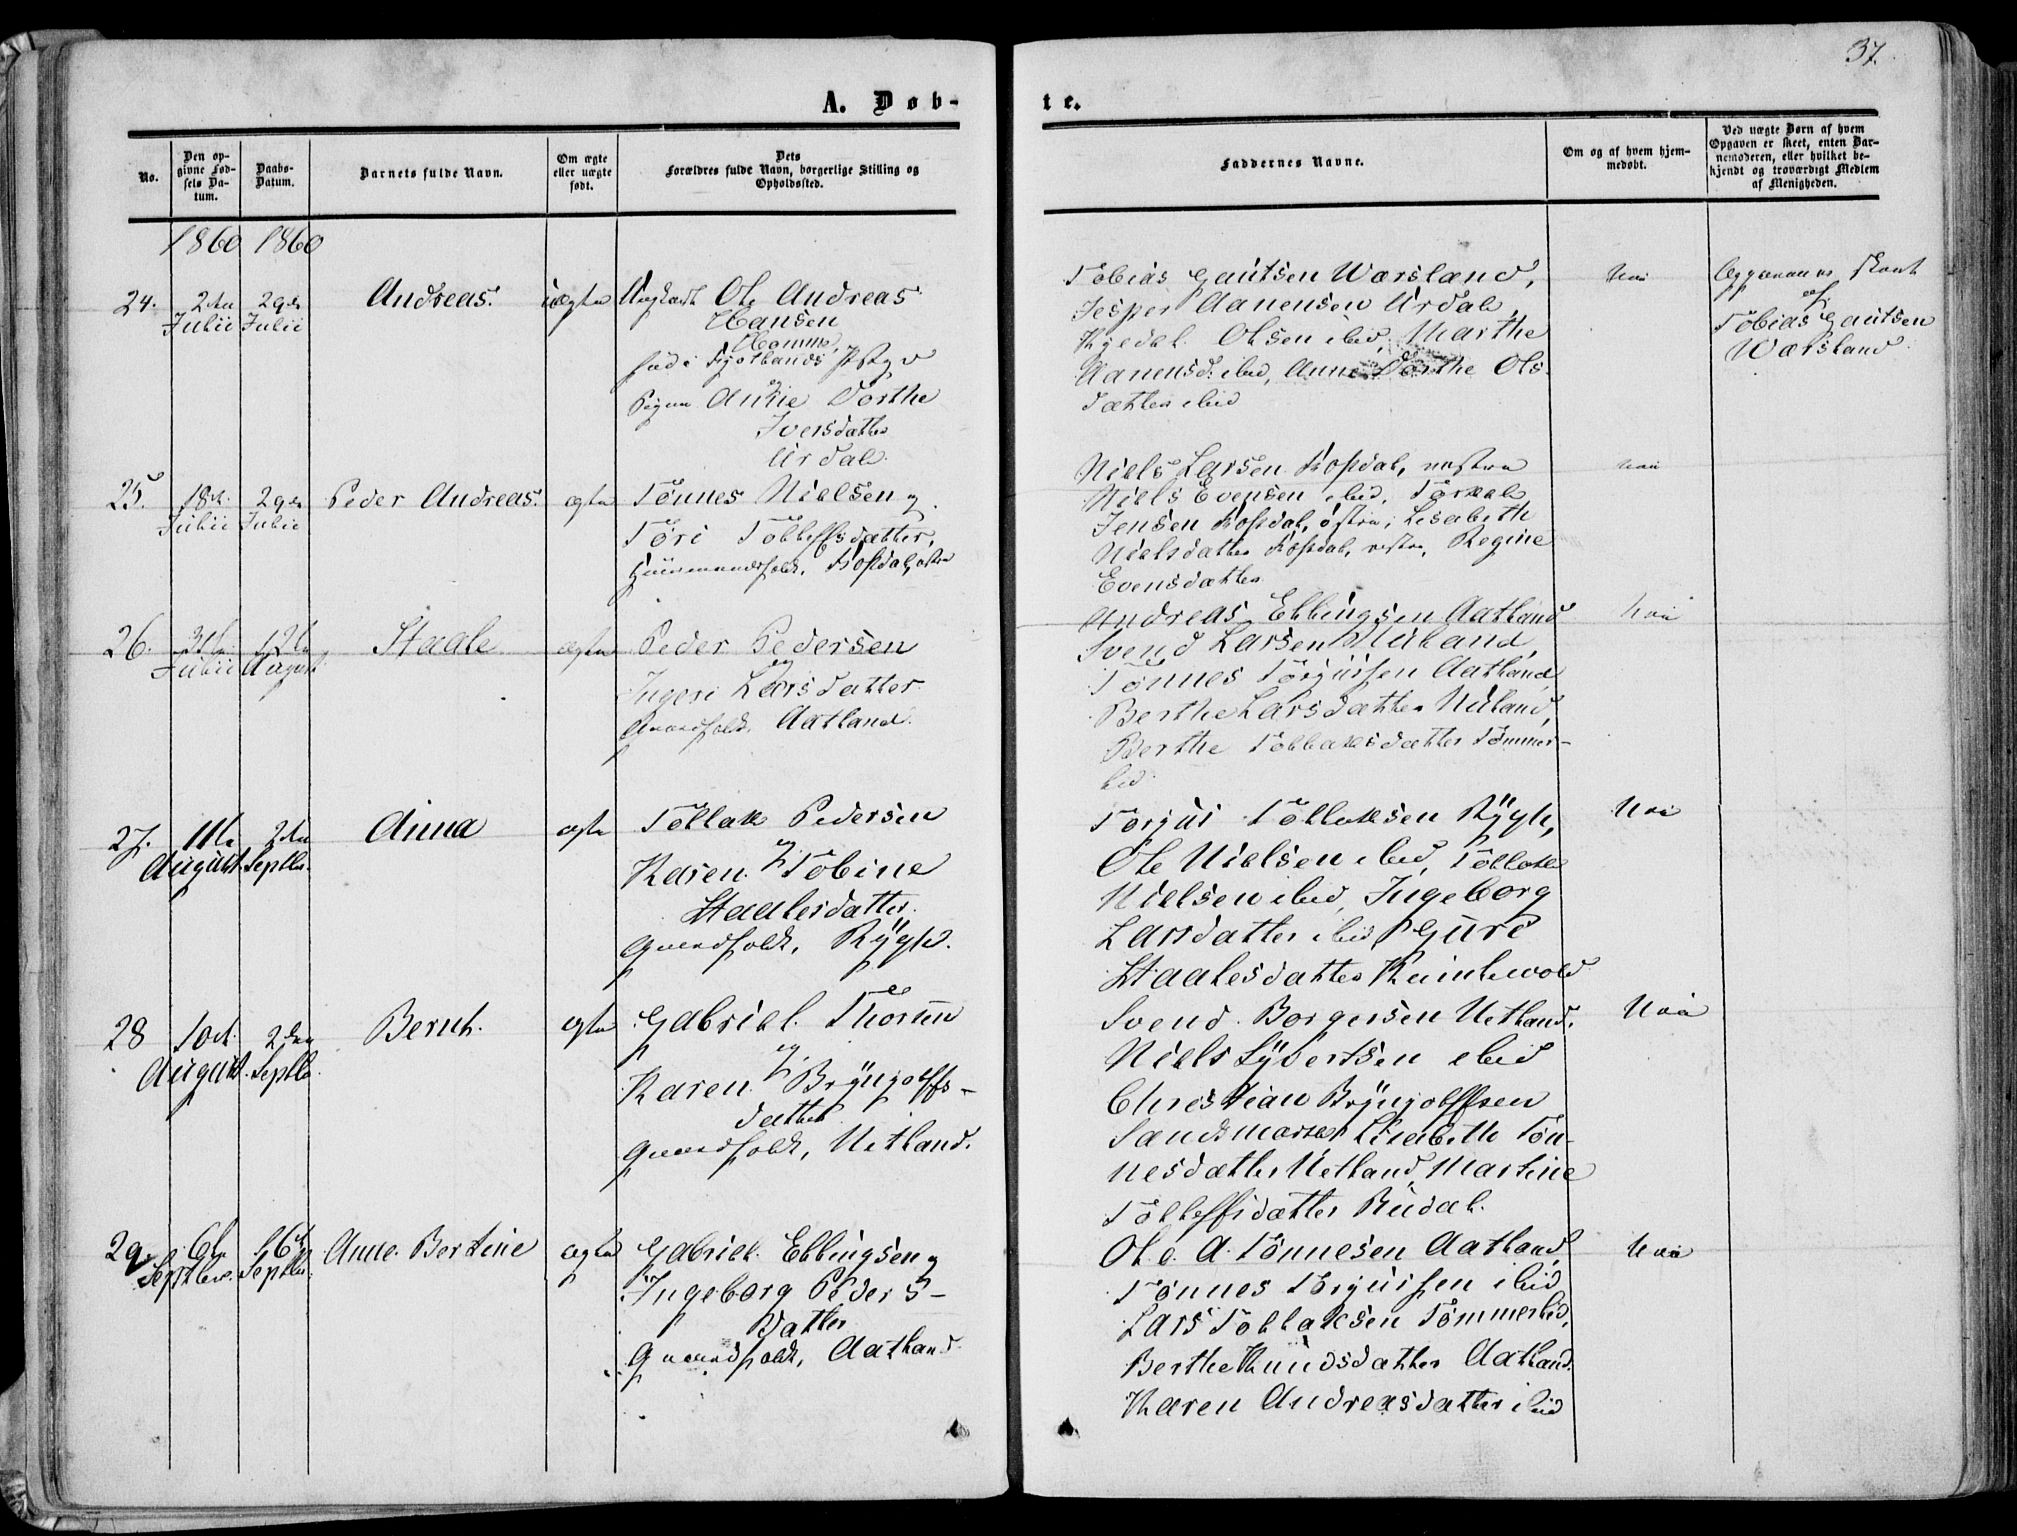 37.
A. Døb-
te.
No.
Den op-
givne Fød-
sels Da-
tum.
Daabs-
Datum.
Barnets fulde Navn.
Om ægte
eller uægte
født.
Dets
Forældres fulde Navn, borgerlige Stilling og
Opholdssted.
Faddernes Navne.
Om og af hvem hjem-
medøbt.
Ved uægte Børn af hvem
Opgaven er skeet, enten Bar-
nemoderen, eller hvilket be-
kjendt og troværdigt Medlem
af Menigheden.
1860 1860
24.
2den
Julii
29de
Julii
Andreas.
uægte
Ungkarl Ole Andreas
Hansen
Homme
født i Fjotlands Pstgd
og
Pigen Anne Dorthe
Iversdatter
Urdal.
Tobias Gautsen Wærsland,
Jesper Aanensen Urdal,
Kjedel Olsen ibid, Marthe
Aanensd. ibid, Anne Dorthe Ols-
datter ibid
Nei
Opgaven skeet
af
Tobias Gautsen
Wærsland.
25.
18de
Julii
29de
Julii
Peder Andreas.
ægte
Tönnes Nielsen og
Töri Tölleffsdatter,
Huusmandsfolk, Fosdal, østre
Niels Larsen Fosdal, vestre
Niels Evensen ibid, Törkel
Jensen Fosdal, østre, Lisabeth
Nielsdatter Fosdal, vestre, Regine
Evensdatter
Nei
26.
31te
Julii
12te
August
Staale
ægte
Peder Pedersen
og
Ingeri Larsdatter
Gaardfolk, Aatland.
Andreas Ellingsen Aatland
Svend Larsen Nuland,
Tönnes Torjussen Aatland
Berthe Larsdatter Nuland,
Berthe Tollaksdatter Tömmer-
lid
Nei
27.
11te
August
2den
Septbr.
Anna
ægte
Töllak Pedersen
og
Karen Tobine
Staalesdatter
Gaardfolk, Rÿgh.
Torjus Töllaksen Rÿgh,
Ole Nielsen ibid, Töllak
Nielsen ibid, Ingeborg
Larsdatter ibid, Guri
Staalesdatter
Nei
28
10de
August
2den
Septbr.
Bernt.
ægte
Gabriel
og
Karen Brÿnjolffs-
datter
Gaardfolk, Netland.
Svend Borgersen Netland,
Niels Sÿvertsen ibid
Christian Brÿnjolffsen
Sandsmark, Lisabeth Tön-
nesdatter Netland, Martine
Tölleffsdatter Rudal.
Nei
29.
6te
Septbr.
16de
Septbr.
Anne Bertine
ægte
Gabriel Ellingsen og
Ingeborg Peders-
datter
Gaardfolk, Aatland.
Ole A. Tönnesen Aatland,
Tönnes Torjussen ibid
Lars Töllaksen Tömmerlid,
Berthe Knudsdatter Aatland.
Karen Andreasdatter ibid
Nei